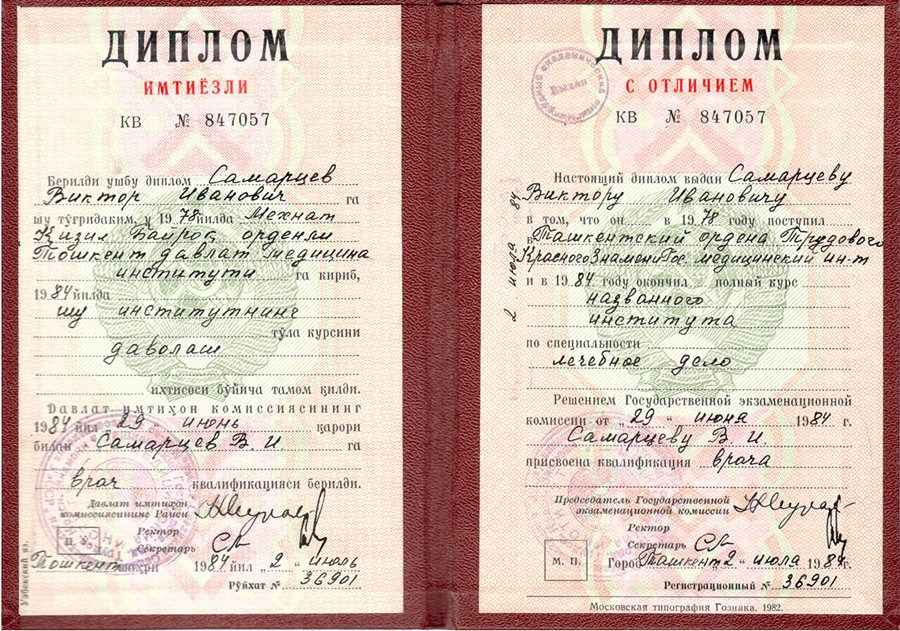 ДИПЛОМ
ИМТИЁЗЛИ
КВ № 847057
Берилди ушбу диплом Самарцев
Виктор Иванович га
шу тўғридаким, у 1978 йилда Мехнат
Қизил Байроқ орденли
Тошкент давлат медицина
институти га кириб,
1984 йилда
шу институтнинг
тўла курсини
даволаш
ихтисоси бўйича тамом қилди.
Давлат имтиҳон комиссиясининг
1984 йил „29“ июнь қарори
билан Самарцев В. И га
врач квалификацияси берилди.
Давлат имтиҳон
комиссиясининг Раиси
Ректор
Секретарь
Тошкент шаҳри 1984 йил „2“ июль
Рўйхат № 36901
Узбекский яз.
ДИПЛОМ
С ОТЛИЧИЕМ
КВ № 847057
Настоящий диплом выдан Самарцеву
Виктору Ивановичу
в том, что он в 1978 году поступил
в Ташкентский ордена Трудового
Красного Знамени Гос. медицинский ин-т
и в 1984 году окончил полный курс
названного
института
по специальности
лечебное дело
Решением Государственной экзаменационной
комиссии от „29“ июня 1984 г.
Самарцеву В. И.
присвоена квалификация врача
Председатель Государственной
экзаменационной комиссии
Ректор
Секретарь
М. П.
Город Ташкент 2 „ июля 1984 г.
Регистрационный № 36901
Московская типография Гознака. 1982.
2 июля 84